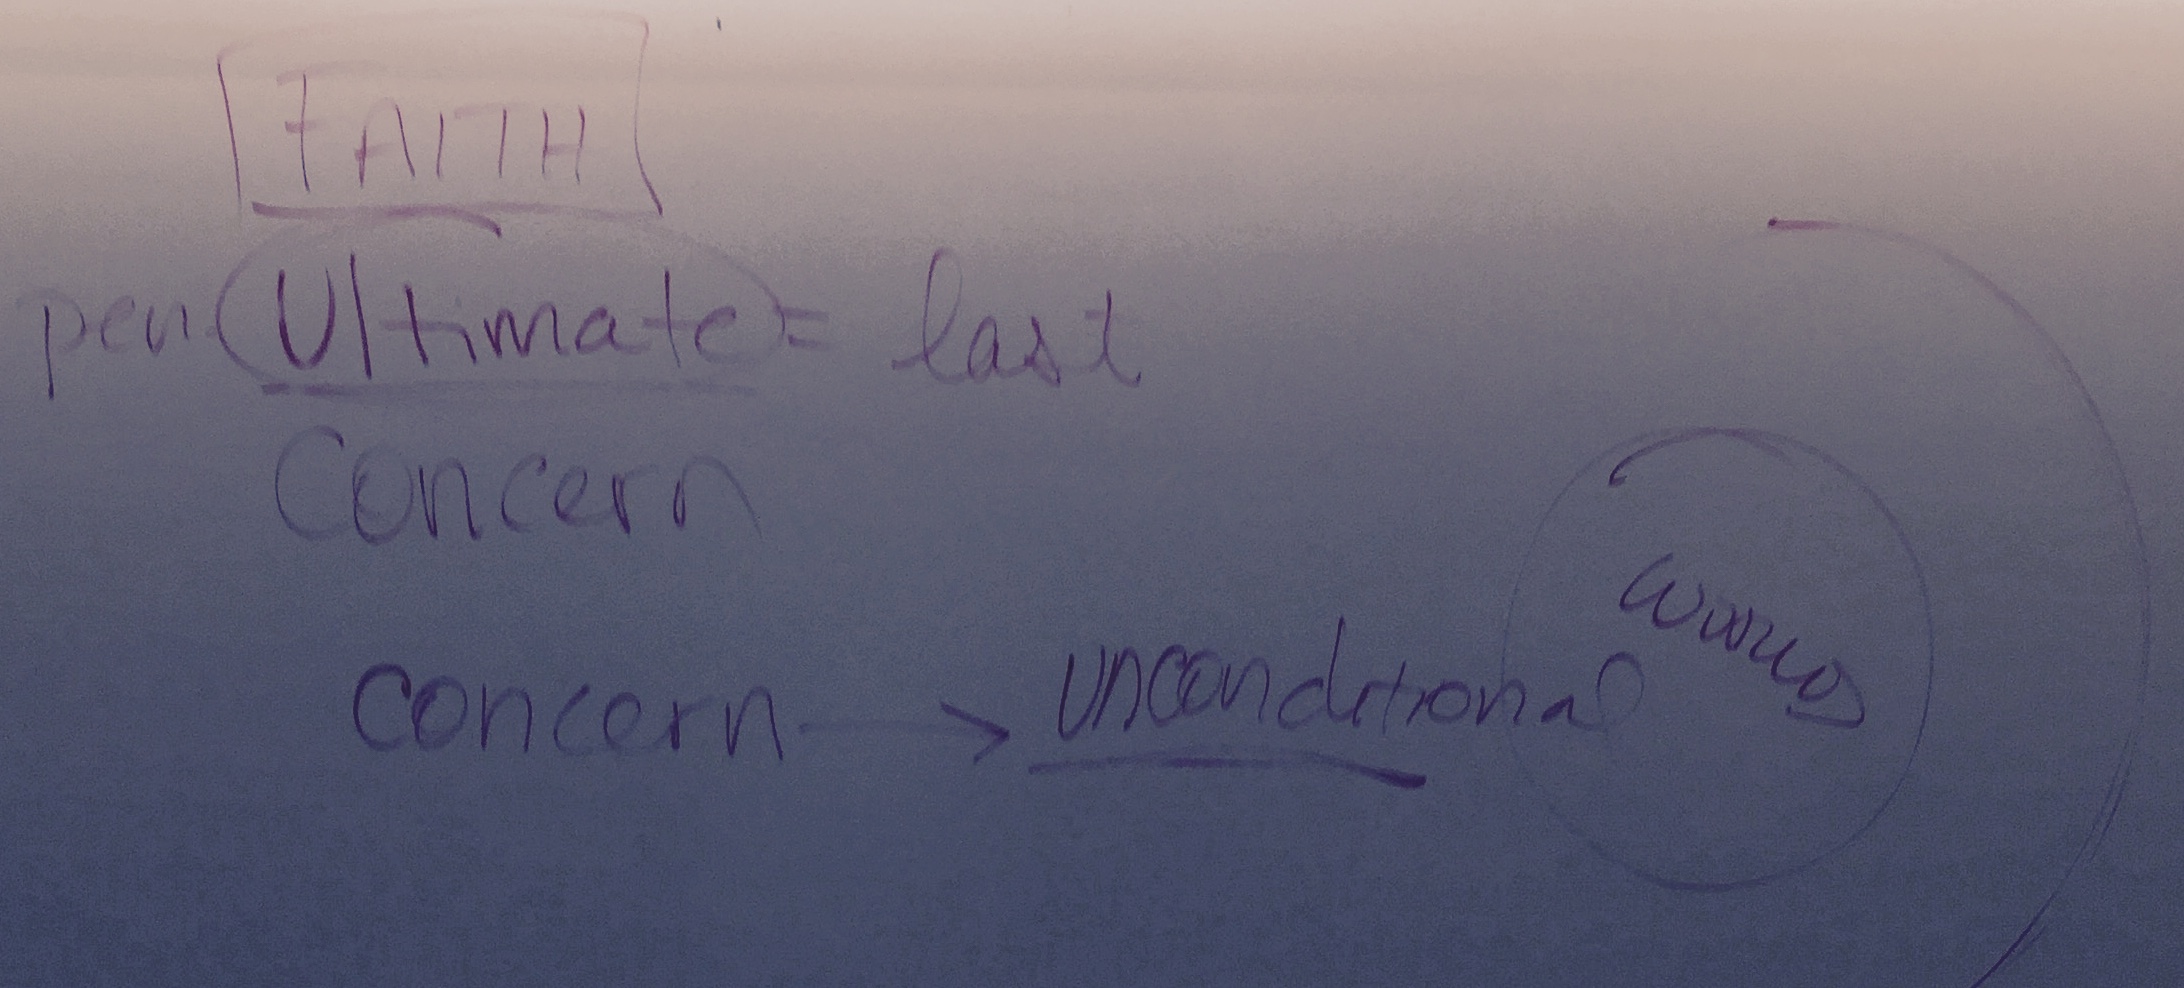 FAITH
pen Ultimate = last
Concern
concern → unconditional